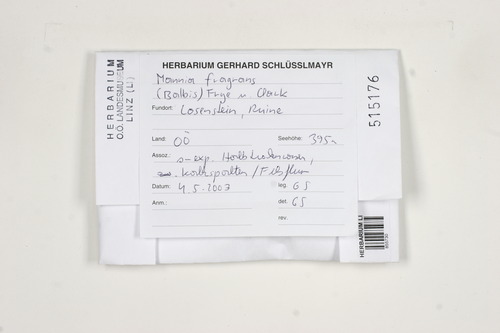 HERBARIUM
O.Ö. LANDESMUSEUM
LINZ (LI)
HERBARIUM GERHARD SCHLÜSSLMAYR
Mannia fragrans
(Balbis) Frye u Clark
Fundort: Losenstein, Ruine
Land: OÖ Seehöhe: 395m
Assoz. s-exp.
Felsflur
Datum: 4.5.2003 leg. GS
Anm.: det. GS
rev.
515176
HERBARIUM LI